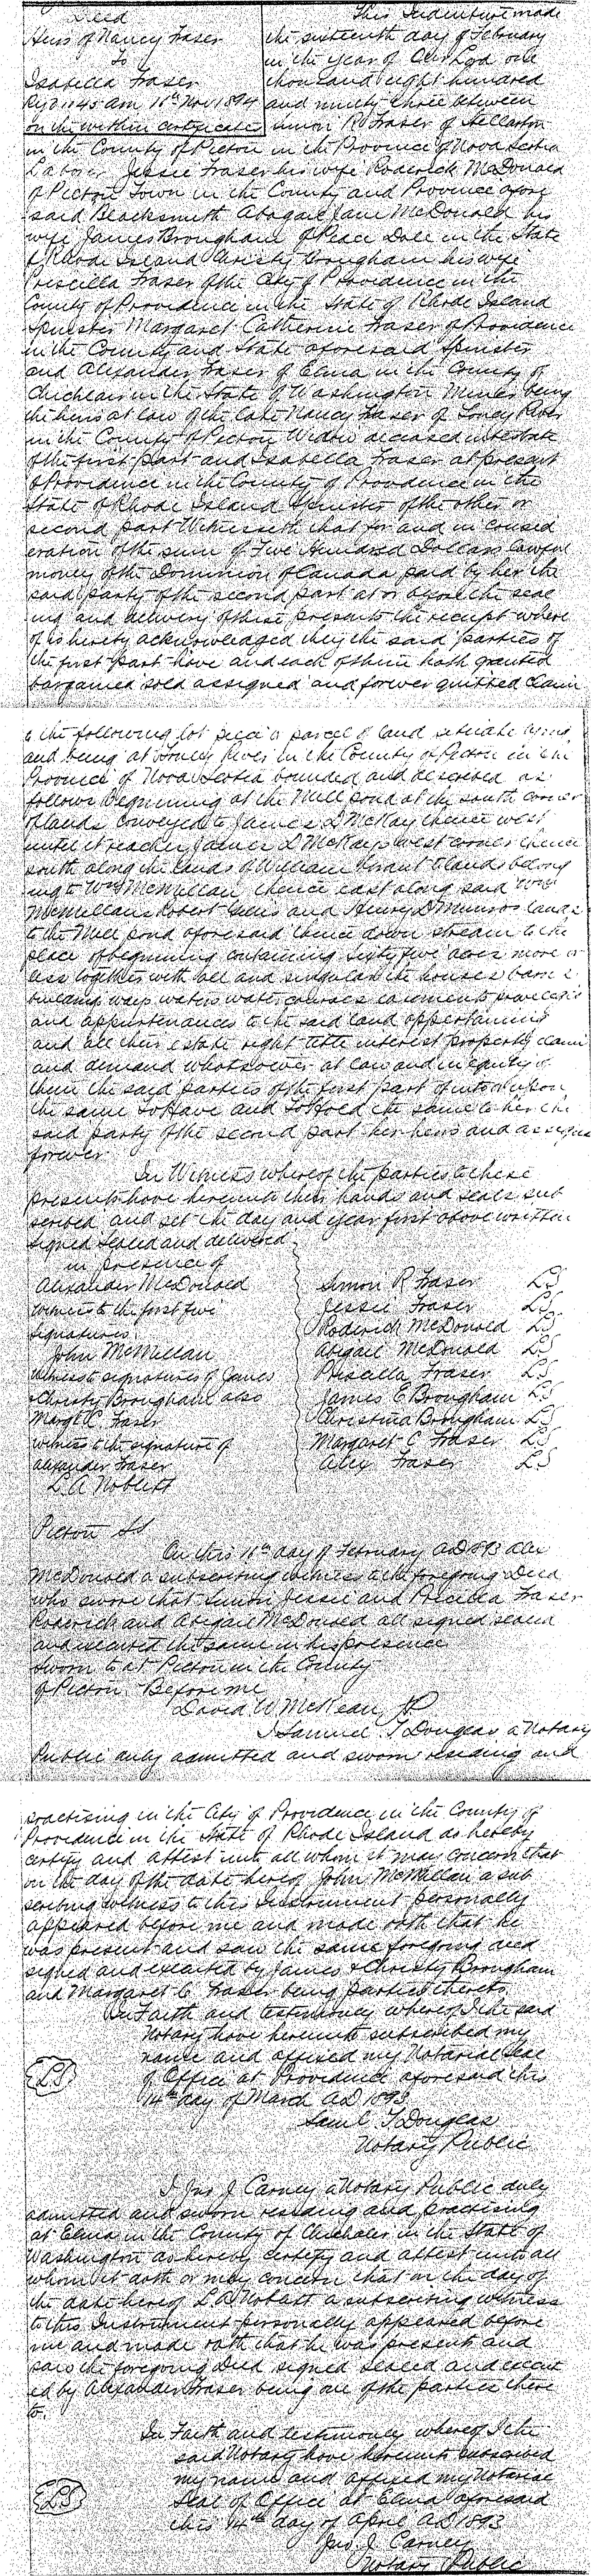 Deed
Heirs of Nancy Fraser
To
Isabella Fraser
Reg'd 11:45 am 16th Nov 1894
on the within certificate
This Indenture made
the sixteenth day of February
in the year of Our Lord one
thousand eight hundred
and ninety three between
Simon R Fraser of Stellarton
in the County of Pictou in the Province of Nova Scotia
Laborer Jessie Fraser his wife Roderick McDonald
of Pictou Town in the County and Province afore
said Blacksmith Abagail Jane McDonald his
wife James Brougham of Peace Dale in the State
of Rhode Island Christy Brougham his wife
Priscilla Fraser of the City of Providence in the
County of Providence in the State of Rhode Island
Spinster Margaret Catherine Fraser of Providence
in the County and State aforesaid Spinster
and Alexander Fraser of Elma in the County of
Chehlais in the State of Washington Miner being
the heirs at law of the late Nancy Fraser of Toney River
in the County of Pictou Widow deceased intestate
of the first part and Isabella Fraser at present
of Providence in the County of Providence in the
State of Rhode Island Spinster of the other or
second part Witnesseth that for and in consid
eration of the sum of Five Hundred Dollars lawful
money of the Dominion of Canada paid by her the
said party of the second part at or before the seal
ing and delivery of these presents the receipt where
of is hereby acknowledged they the said parties of
the first part have and each of them hath granted
bargained sold assigned and forever quitted claim
to the following lot piece or parcel of land situate lying
and being at Toney River in the County of Pictou in the
Province of Nova Scotia bounded and described as
follows Beginning at the Mill pond at the south corner
of lands conveyed to James D McKay thence west
until it reaches James D McKays west corner thence
south along the lands of William Grant to lands belong
ing to Wm McMillan thence east along said Wm
McMillans Robert and Henry D Munros lands
to the Mill pond aforesaid thence down stream to the
place of beginning containing sixty five acres more or
less together with all and singular the houses barns
building ways waters water courses easements
and appurtenances to the said land appertaining
and all their estate right title interest property claim
and demand whatsoever at law and in equity of
them the said parties of the first part of into or upon
the same To Have and To Hold the same to her the
said party of the second part her heirs and assigns
forever
In Witness whereof the parties to these
presents have hereunto their hands and seals sub
scribed and set the day and year first above written
Signed Sealed and delivered
in presence of
Alexander McDonald
witness to the first five
signatures
John McMillan
witness to signatures of James
& Christy Brougham also
Margt C. Fraser
witness to the signature of
Alexander Fraser
L. A. Noblett
Simon R Fraser LS
Jessie Fraser LS
Roderick McDonald LS
Abigail McDonald LS
Priscilla Fraser LS
James C Brougham LS
Christina Brougham LS
Margaret C Fraser LS
Alex Fraser LS
Pictou SS
On this 16th day of February AD 1893 Alex
McDonald a subscribing witness to the foregoing Deed
who swore that Simon Jessie and Priscilla Fraser
Roderick and Abigail McDonald all signed sealed
and executed the same in his presence
Sworn to at Pictou in the County
of Pictou. Before me
David W McKean JP
I Samuel T Douglas a Notary
Public duly admitted and sworn residing and
practising in the City of Providence in the County of
Providence in the State of Rhode Island do hereby
certify and attest unto all whom it may concern that
on the day of the date hereof John McMillan a sub
scribing witness to this Instrument personally
appeared before me and made oath that he
was present and saw the same foregoing deed
signed and executed by James & Christy Brougham
and Margaret C. Fraser being parties thereto.
In Faith and testimony whereof I the said
Notary have hereunto subscribed my
name and affixed my Notarial Seal
of Office at Providence aforesaid this
14th day of March AD 1893
LS
Saml T Douglas
Notary Public
I Jno J. Carney a Notary Public duly
admitted and sworn residing and practising
at Elma in the County of Chehalis in the State of
Washington do hereby certify and attest unto all
whom it doth or may concern that on the day of
the date hereof L A Noblett a subscribing witness
to this Instrument personally appeared before
me and made oath that he was present and
saw the foregoing Deed signed sealed and execut
ed by Alexander Fraser being one of the parties there
to.
In Faith and testimony whereof I the
said Notary have hereunto subscribed
my name and affixed my Notarial
Seal of Office at Elma aforesaid
this 14th day of April AD 1893
LS
Jno. J. Carney
Notary Public